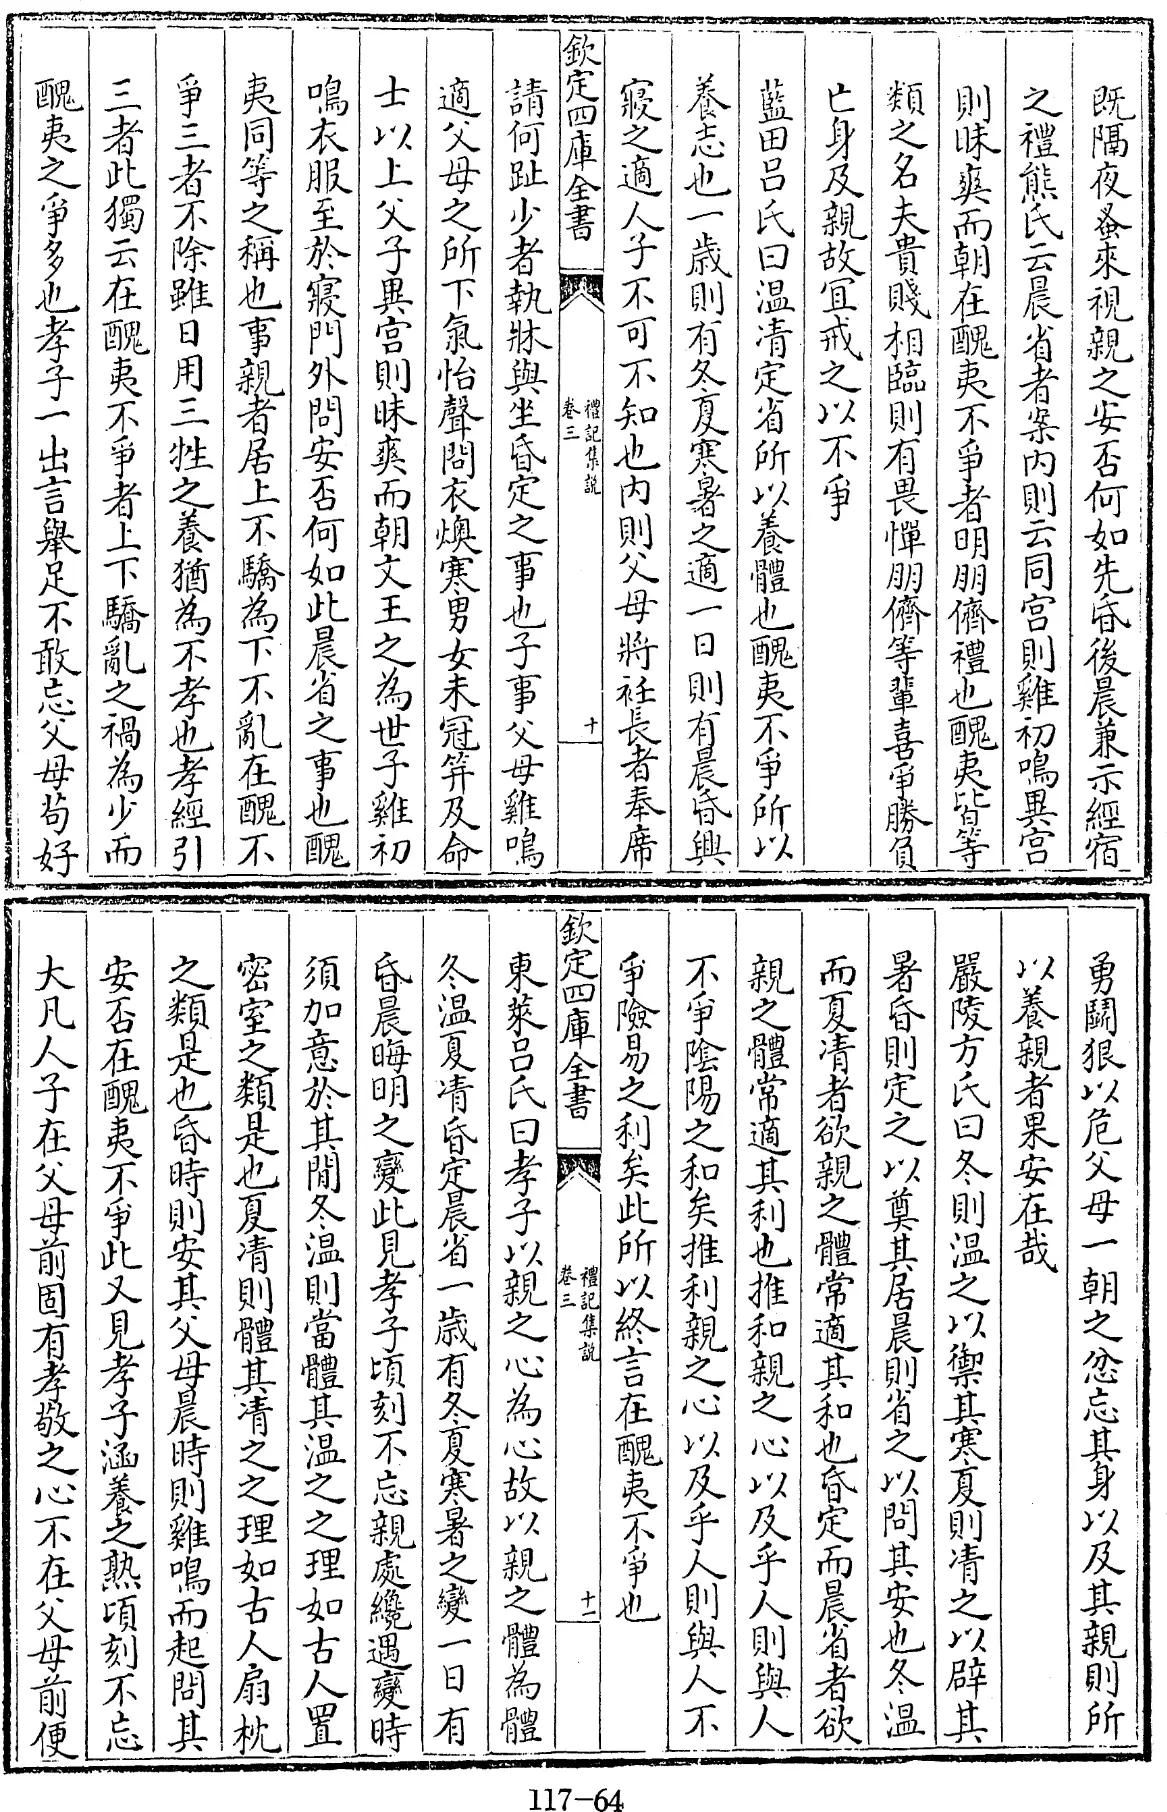 既隔夜蚤來視親之安否何如先昏後晨兼示經宿
之禮熊氏云晨省者案内則云同宫則雞初鳴異宫
則昧爽而朝在醜夷不爭者明朋儕禮也醜夷皆等
類之名夫貴賤相臨則有畏憚朋儕等輩喜爭勝負
亡身及親故宜戒之以不爭
藍田吕氏曰温凊定省所以養體也醜夷不爭所以
養志也一歲則有冬夏寒暑之適一日則有晨昏興
寢之適人子不可不知也内則父母將衽長者奉席
欽定四庫全書
禮記集說
卷三
十
請何趾少者執牀與坐昏定之事也子事父母雞鳴
適父母之所下氣怡聲問衣燠寒男女未冠笄及命
士以上父子異宫則昧爽而朝文王之為世子雞初
鳴衣服至於寢門外問安否何如此晨省之事也醜
夷同等之稱也事親者居上不驕為下不亂在醜不
爭三者不除雖日用三牲之養猶為不孝也孝經引
三者此獨云在醜夷不爭者上下驕亂之禍為少而
醜夷之爭多也孝子一出言舉足不敢忘父母茍好
勇鬭狠以危父母一朝之忿忘其身以及其親則所
以養親者果安在哉
嚴陵方氏曰冬則温之以禦其寒夏則凊之以辟其
暑昏則定之以奠其居晨則省之以問其安也冬温
而夏凊者欲親之體常適其和也昏定而晨省者欲
親之體常適其利也推和親之心以及乎人則與人
不爭陰陽之和矣推利親之心以及乎人則與人不
爭險易之利矣此所以終言在醜夷不爭也
欽定四庫全書
禮記集說
卷三
十一
東萊吕氏曰孝子以親之心為心故以親之體為體
冬温夏凊昏定晨省一歲有冬夏寒暑之變一日有
昏晨晦明之變此見孝子頃刻不忘親處纔遇變時
須加意於其間冬温則當體其温之之理如古人置
密室之類是也夏凊則體其凊之之理如古人扇枕
之類是也昏時則安其父母晨時則雞鳴而起問其
安否在醜夷不爭此又見孝子涵養之熟頃刻不忘
大凡人子在父母前固有孝敬之心不在父母前便
117-64